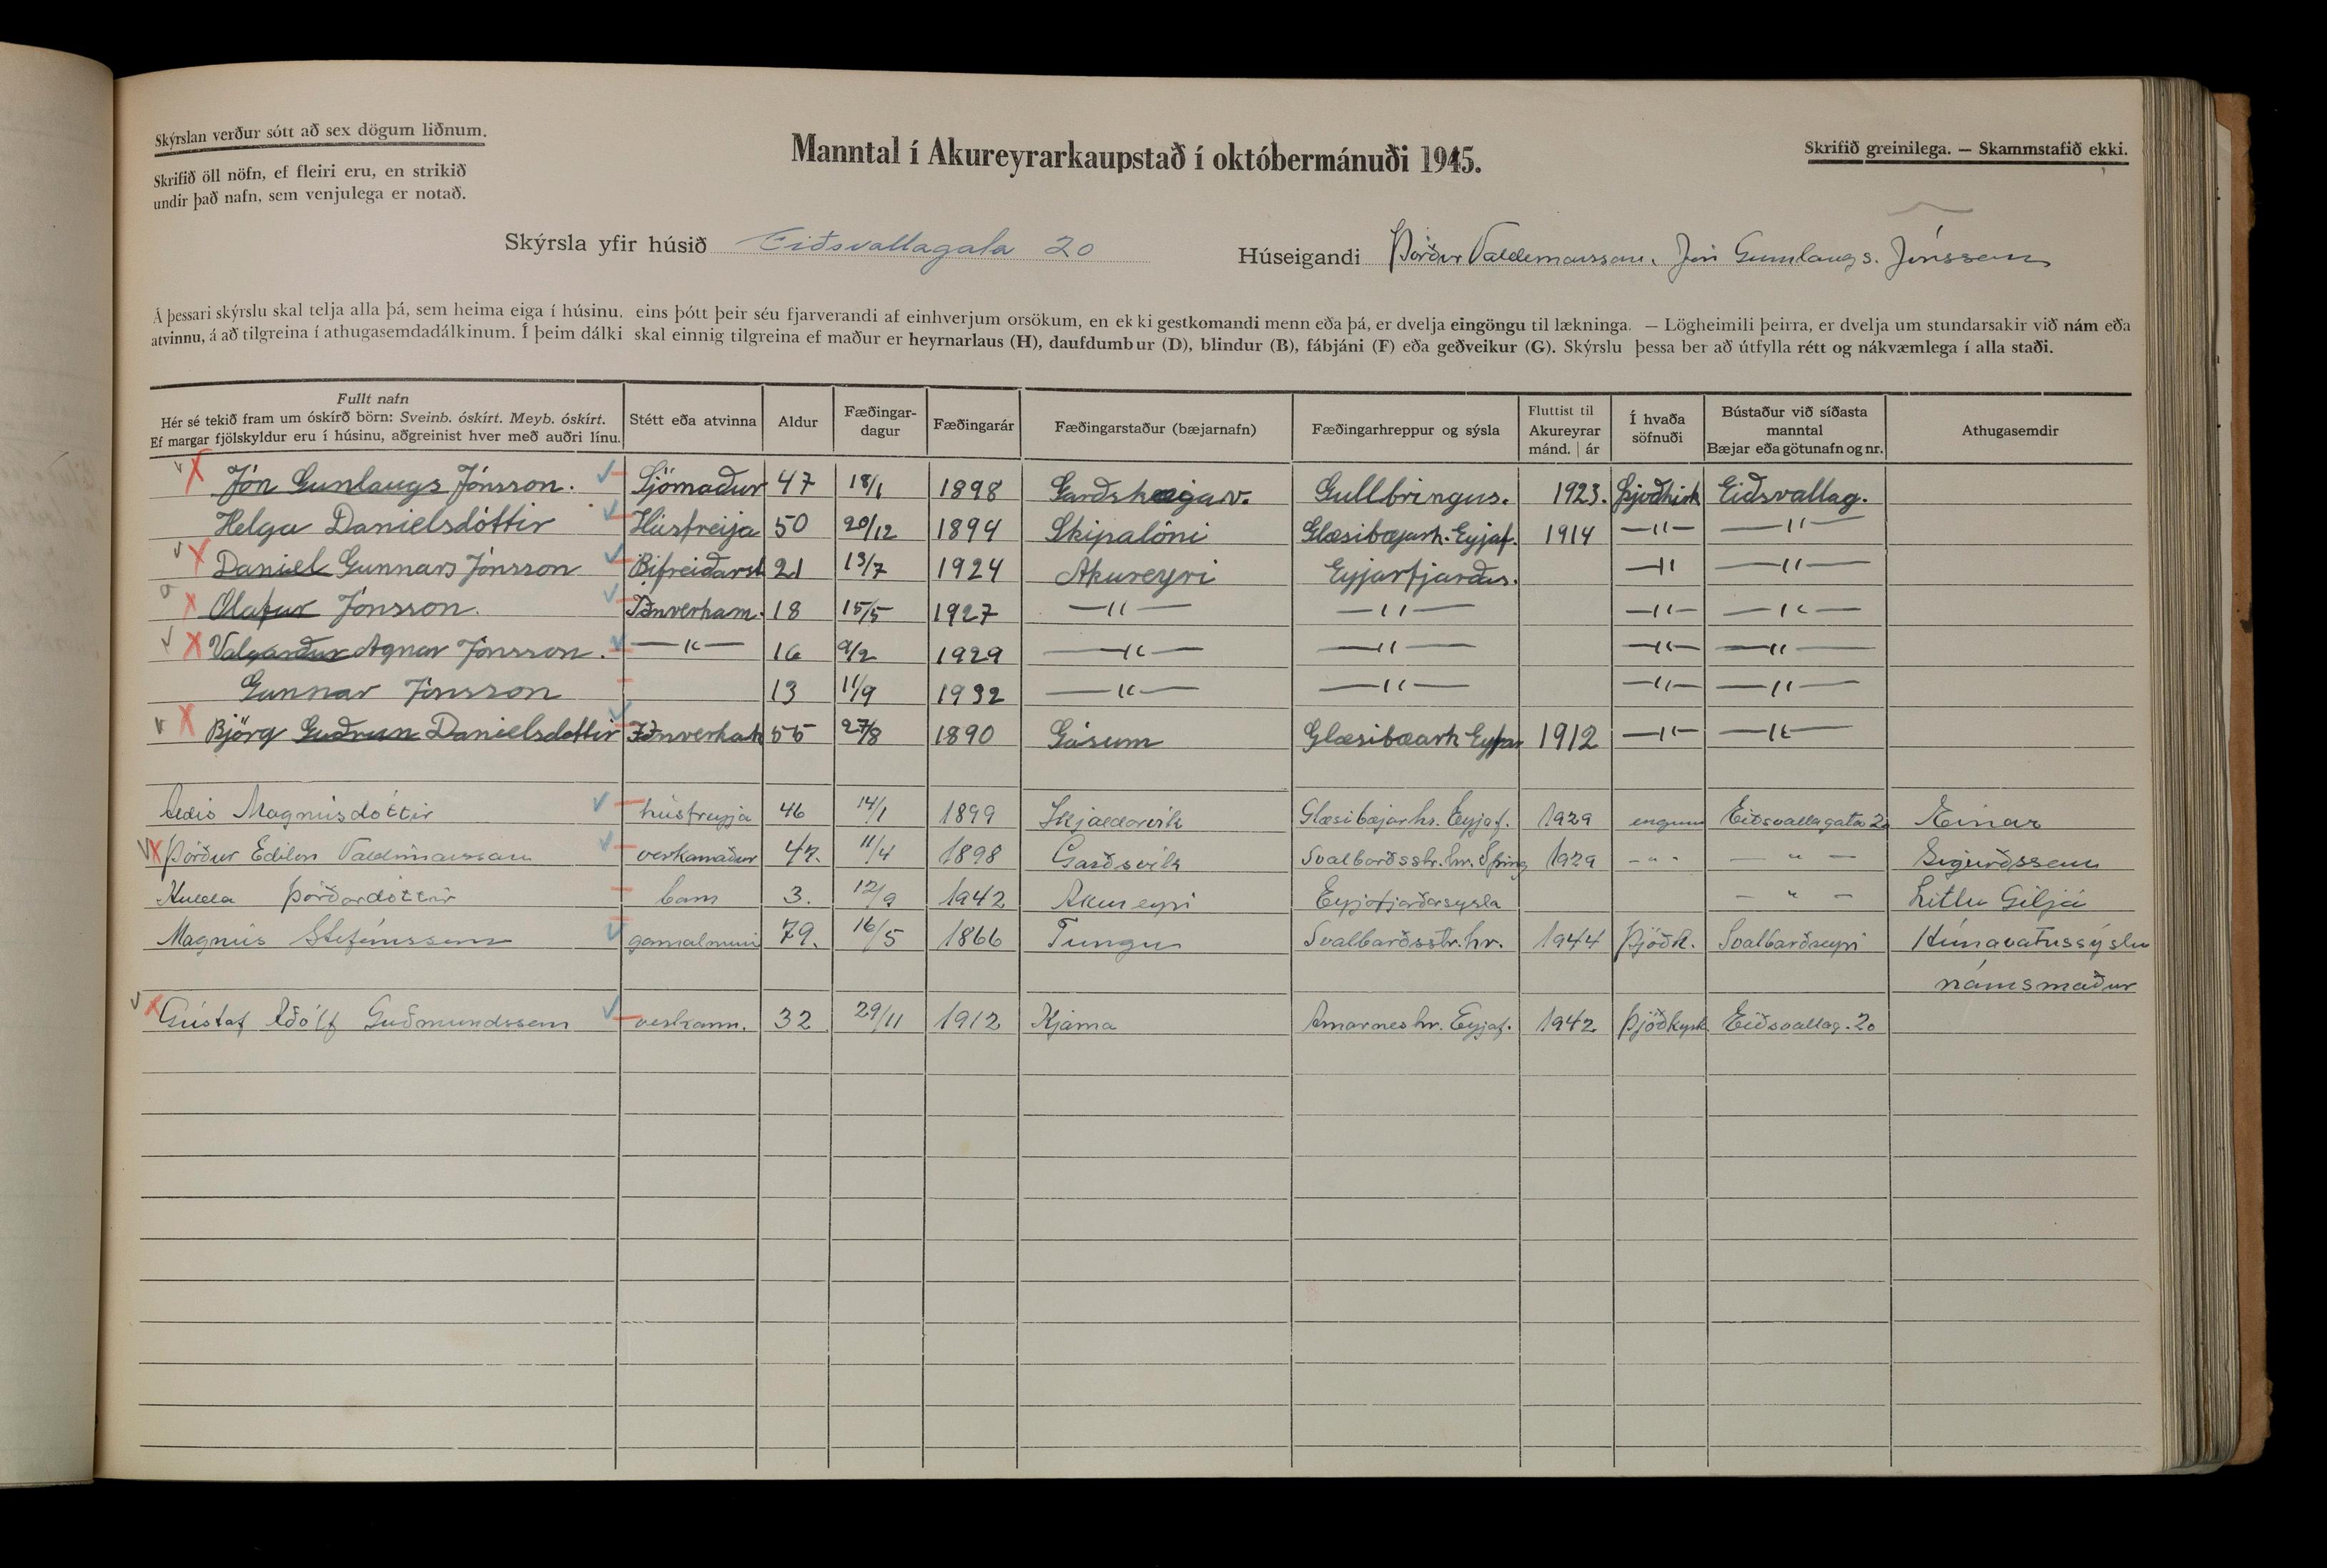 Skýrslan verður sótt að sex dögum liðnum.
Skrifið öll nöfn, ef fleiri eru, en strikið
undir það nafn, sem venjulega er notað.
Manntal í Akureyrarkaupstað í októbermánuði 1945.
Skrifið greinilega. — Skammstafið ekki.
Skýrsla yfir húsið Eiðsvallagata 20
Húseigandi Þórður Valdemarsson, Jón Gunnlaugs. Jónsson
Á þessari skýrslu skal telja alla þá, sem heima eiga í húsinu, eins þótt þeir séu fjarverandi af einhverjum orsökum, en ekki gestkomandi menn eða þá, er dvelja eingöngu til lækninga. — Lögheimili þeirra, er dvelja um stundarsakir við nám eða
atvinnu, á að tilgreina í athugasemdadálkinum. Í þeim dálki skal einnig tilgreina ef maður er heyrnarlaus (H), daufdumbur (D), blindur (B), fábjáni (F) eða geðveikur (G). Skýrslu þessa ber að útfylla rétt og nákvæmlega í alla staði.
Fullt nafn
Hér sé tekið fram um óskírð börn: Sveinb. óskírt. Meyb. óskírt.
Ef margar fjölskyldur eru í húsinu, aðgreinist hver með auðri línu.
Stétt eða atvinna
Aldur
Fæðingar-
dagur
Fæðingarár
Fæðingarstaður (bæjarnafn)
Fæðingarhreppur og sýsla
Fluttist til
Akureyrar
mánd. | ár
Í hvaða
söfnuði
Bústaður við síðasta
manntal
Bæjar eða götunafn og nr.
Athugasemdir
Jón Gunlaugs Jónsson. Sjómaður 47 18/1 1898 Gullbringus. 1923. Þjóðkirk Eiðsvallag.
Helga Danielsdóttir Húsfreija 50 20/12 1894 Skipalóni Glæsibæjarh. Eyjaf. 1914 —"— —"—
Daniel Gunnars Jónsson Bifreiðarst 21 13/7 1924 Akureyri Eyjarfjarðas. —" —"—
Olafur Jónsson. Iðnverkam. 18 15/5 1927 —"— —"— —"— —"—
Valgarður Agnar Jónsson. —"— 16 9/2 1929 —"— —"— —"— —"—
Gunnar Jónsson 13 11/9 1932 —"— —"— —"— —"—
Björg Guðrun Danielsdottir Iðnverkak 55 27/8 1890 Gásum Glæsibæarh Eyjar 1912 —"— —"—
Magnúsdóttir húsfreyja 46 14/1 1899 Skjaldarvík Glæsibæjarhr. Eyjaf. 1929 engum Eiðsvallagata 20 Einar
Þórður Edilon Valdimarsson verkamaður 47. 11/4 1898 Garðsvík Svalbarðsstr. hr. S þing 1929 - " - — " — Sigurðssonu
Hulda Þórðardóttir barn 3. 12/9 1942 Akureyri Eyjafjarðarsysla - " - Litlu Giljá
Magnús Stefánsson gamalmenni 79. 16/5 1866 Tungu Svalbarðsstr. hr. 1944 Þjóðk. Svalbarðseyri Húnavatnssýslu
námsmaður
Gústaf Adólf Guðmundsson verkam. 32 29/11 1912 Kjarna Arnarneshr. Eyjaf. 1942 Þjóðkyrk Eiðsvallag. 20